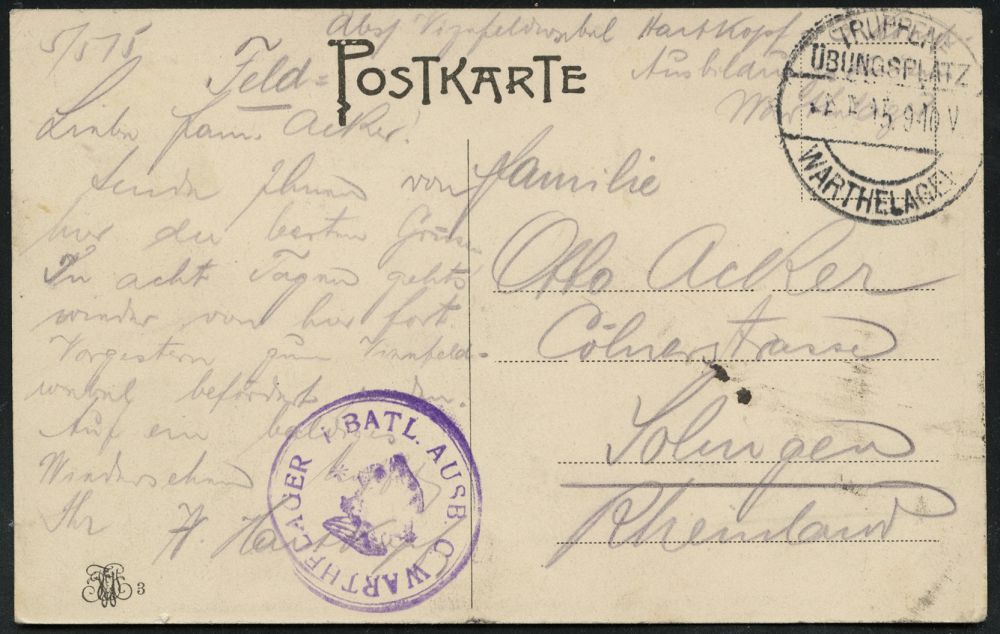 Abs. Vizefeldwebel Hartkopf
5/5 15
Feld=
POSTKARTE
Liebe Fam. Acker!
Sende Ihnen von
hier die besten Grüsse
In acht Tagen gehts
wieder von hier fort.
Vorgestern zum Vizefeld-
webel befördert worden.
Auf ein baldiges
Wiedersehen
Ihr
H. Hartkopf
Familie
Otto Acker
Cölnerstrasse
Solingen
Rheinland
TRUPPEN
ÜBUNGSPLATZ
15. 9-10 V
WARTHELAGER
I BATL. AUSB. C. WARTHELAGER
3